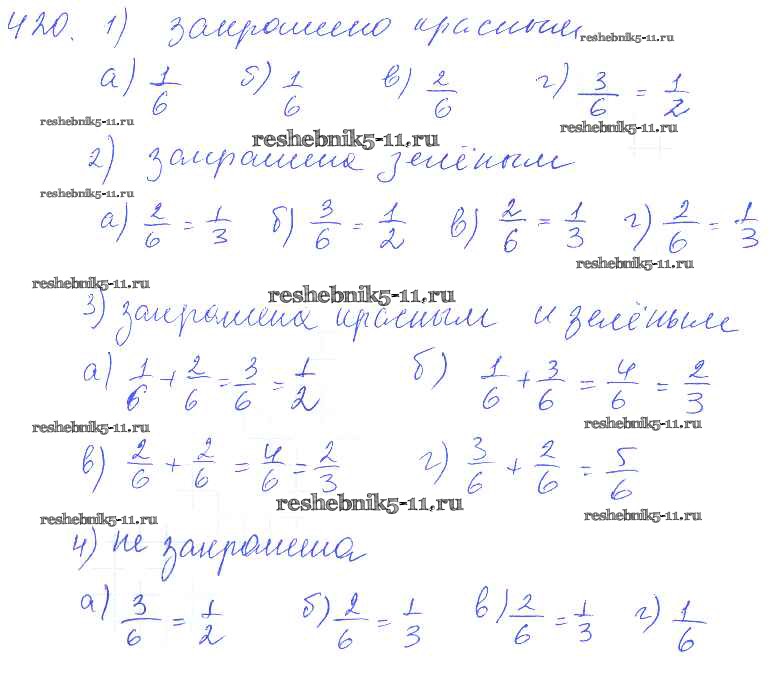 420. 1) закрашено красным
reshebnik5-11.ru
а) 1/6 б) 1/6 в) 2/6 г) 3/6 = 1/2
reshebnik5-11.ru reshebnik5-11.ru reshebnik5-11.ru
2) закрашена зелёным
reshebnik5-11.ru
а) 2/6 = 1/3 б) 3/6 = 1/2 в) 2/6 = 1/3 г) 2/6 = 1/3
reshebnik5-11.ru
reshebnik5-11.ru reshebnik5-11.ru
3) закрашена красным и зелёным
а) 1/6 + 2/6 = 3/6 = 1/2 б) 1/6 + 3/6 = 4/6 = 2/3
reshebnik5-11.ru reshebnik5-11.ru
в) 2/6 + 2/6 = 4/6 = 2/3 г) 3/6 + 2/6 = 5/6
reshebnik5-11.ru
reshebnik5-11.ru reshebnik5-11.ru
4) не закрашена
а) 3/6 = 1/2 б) 2/6 = 1/3 в) 2/6 = 1/3 г) 1/6